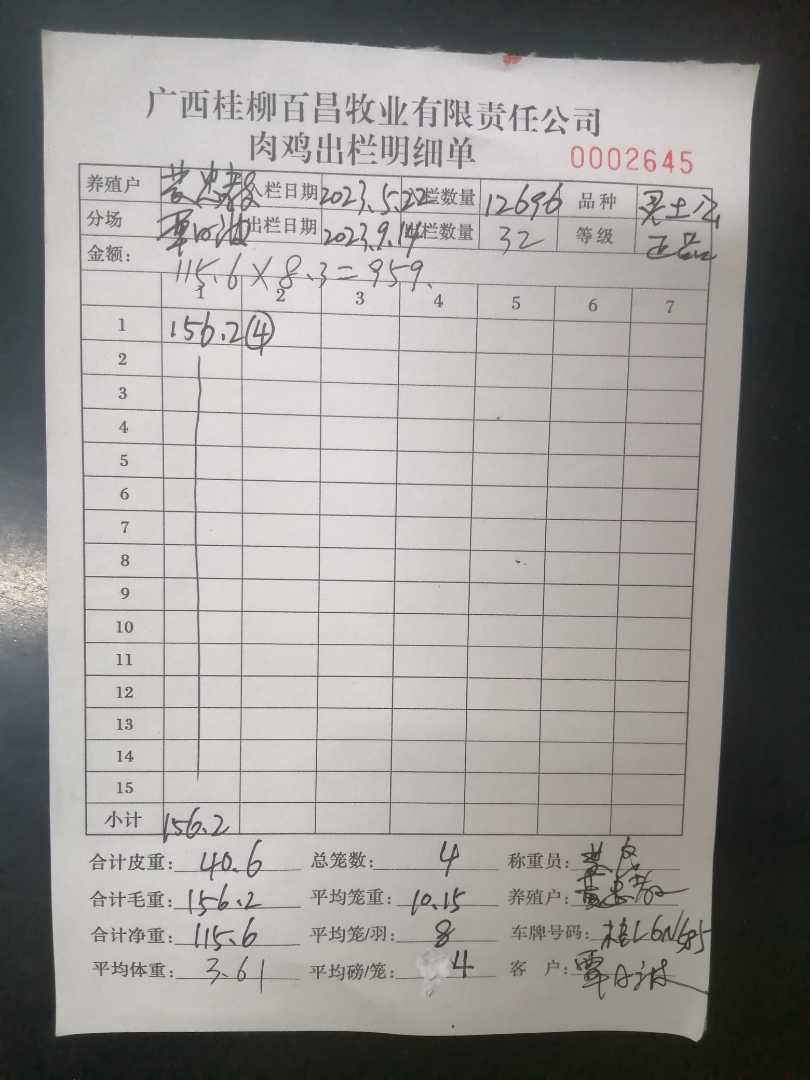 广西桂柳百昌牧业有限责任公司
肉鸡出栏明细单
0002645
养殖户 入栏日期 2023.5.22 栏数量 12696 品种
分场 出栏日期 2023.9.14 栏数量 32 等级 正品
金额: 115.6×8.3=959.
1 2 3 4 5 6 7
1 156.2④
2
3
4
5
6
7
8
9
10
11
12
13
14
15
小计 156.2
合计皮重: 40.6 总笼数: 4 称重员:
合计毛重: 156.2 平均笼重: 10.15 养殖户:
合计净重: 115.6 平均笼/羽: 8 车牌号码: 桂L6N585
平均体重: 3.61 平均磅/笼: 4 客 户: